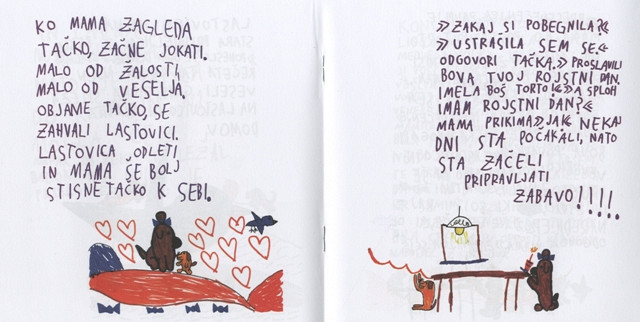 KO MAMA ZAGLEDA
TAČKO, ZAČNE JOKATI.
MALO OD ŽALOSTI,
MALO OD VESELJA.
OBJAME TAČKO, SE
ZAHVALI LASTOVICI.
LASTOVICA ODLETI
IN MAMA ŠE BOLJ
STISNE TAČKO K SEBI.
»ZAKAJ SI POBEGNILA?«
»USTRAŠILA SEM SE.«
ODGOVORI TAČKA. »PROSLAVILI
BOVA TVOJ ROJSTNI DAN.
IMELA BOŠ TORTO!« »A SPLOH
IMAM ROJSTNI DAN?«
MAMA PRIKIMA »JA«. NEKAJ
DNI STA POČAKALI, NATO
STA ZAČELI
PRIPRAVLJATI
ZABAVO!!!!!